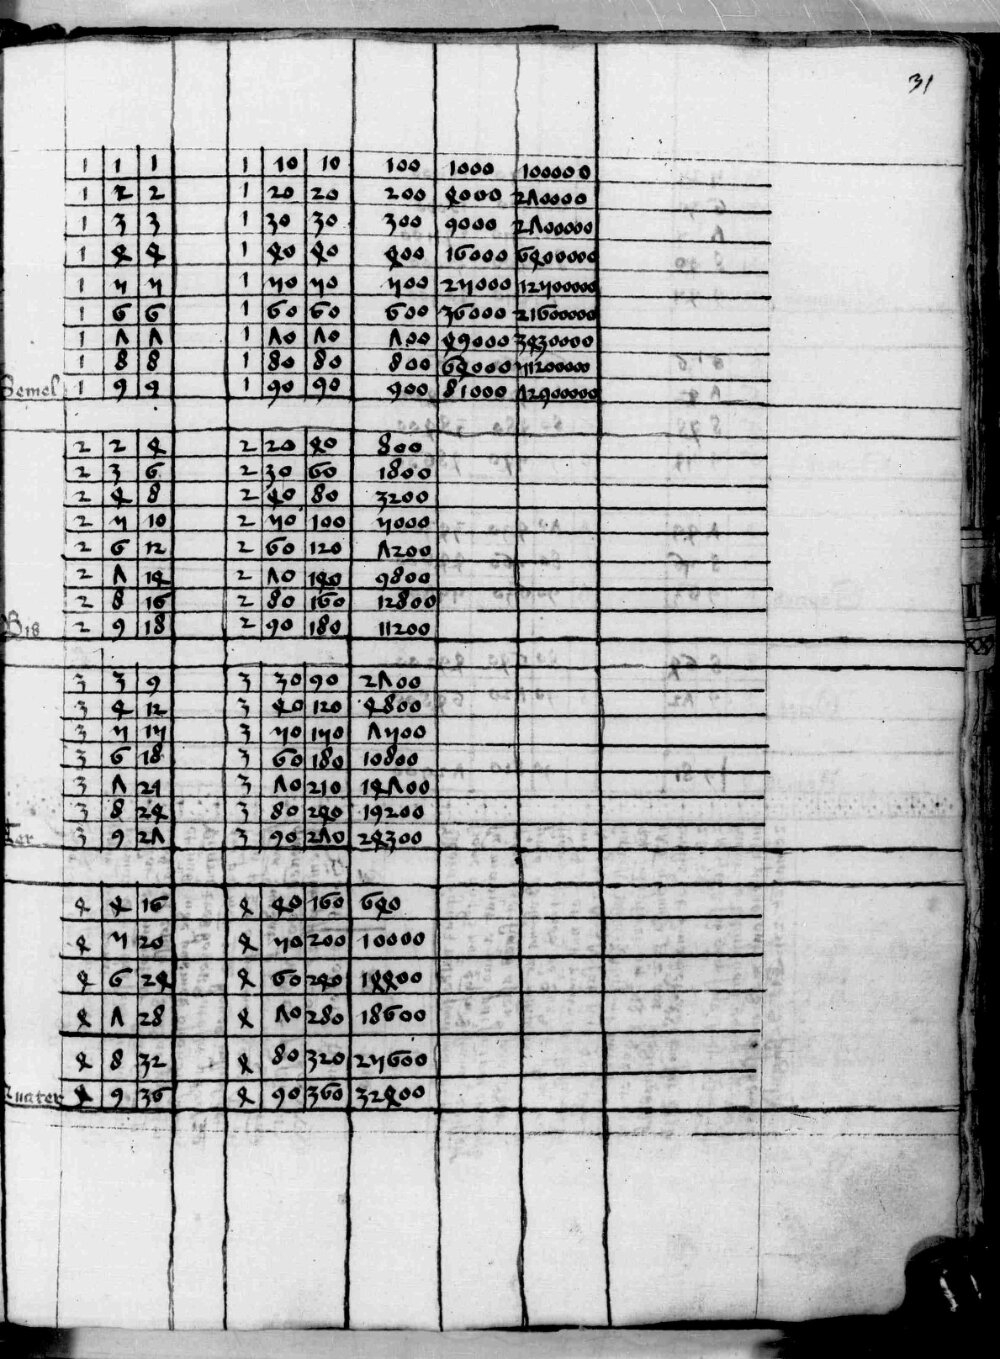 31
1 1 1 1 10 10 100 1000 100000
1 2 2 1 20 20 200 4000 270000
1 3 3 1 30 30 300 9000 2700000
1 4 4 1 40 40 400 16000 6400000
1 5 5 1 50 50 500 25000 12500000
1 6 6 1 60 60 600 36000 21600000
1 7 7 1 70 70 700 49000 3430000
1 8 8 1 80 80 800 64000
Semel 1 9 9 1 90 90 900 81000 72900000
2 2 4 2 20 40 800
2 3 6 2 30 60 1800
2 4 8 2 40 80 3200
2 5 10 2 50 100 5000
2 6 12 2 60 120 7200
2 7 14 2 70 140 9800
2 8 16 2 80 160 12800
Bis 2 9 18 2 90 180 11200
3 3 9 3 30 90 2700
3 4 12 3 40 120 4800
3 5 15 3 50 150 7500
3 6 18 3 60 180 10800
3 7 21 3 70 210 14700
3 8 24 3 80 240 19200
Ter 3 9 27 3 90 270 24300
4 4 16 4 40 160 640
4 5 20 4 50 200 10000
4 6 24 4 60 240 14400
4 7 28 4 70 280 18600
4 8 32 4 80 320 25600
Quater 4 9 36 4 90 360 32400